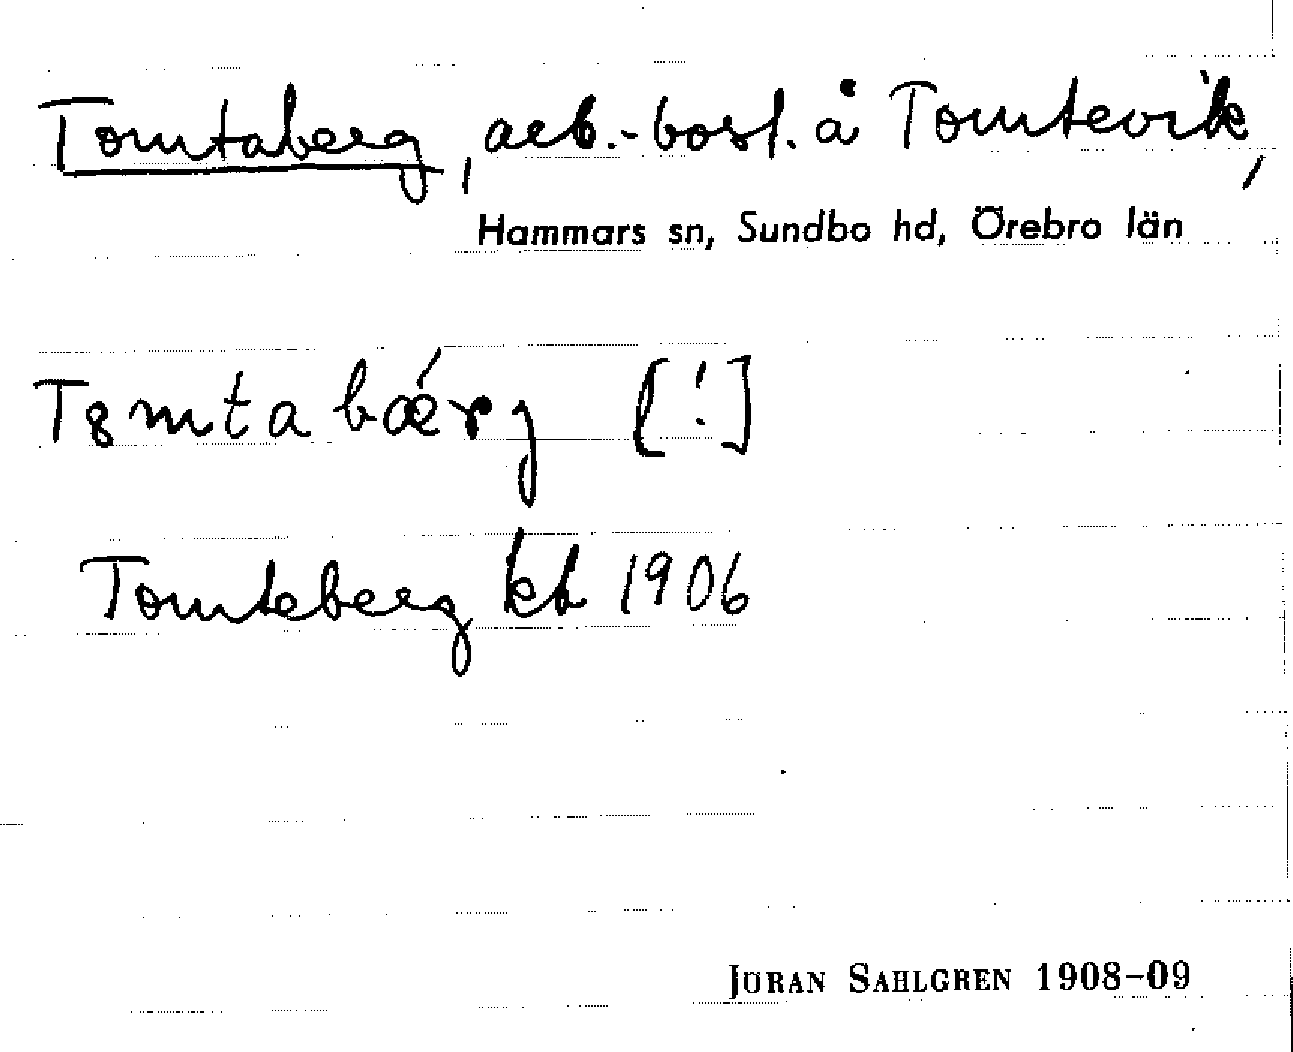 Tomtaberg, arb.-bost. å Tomtevik,
Hammars sn, Sundbo hd, Örebro län
T8mtabǽrj [!]
Tomteberg kb 1906
JÖRAN SAHLGREN 1908–09